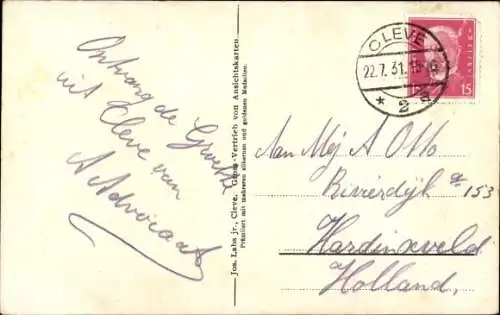 Ontvang de Groeten
uit Cleve van
A Advocaat
Jos. Labs jr., Cleve, Gross-Vertrieb von Ansichtskarten.
Prämiiert mit mehreren silbernen und goldenen Medaillen.
CLEVE
22.7.31.
* 2
15
Aan Mej A Otto
Rivierdijk 153
Hardinxveld
Holland.